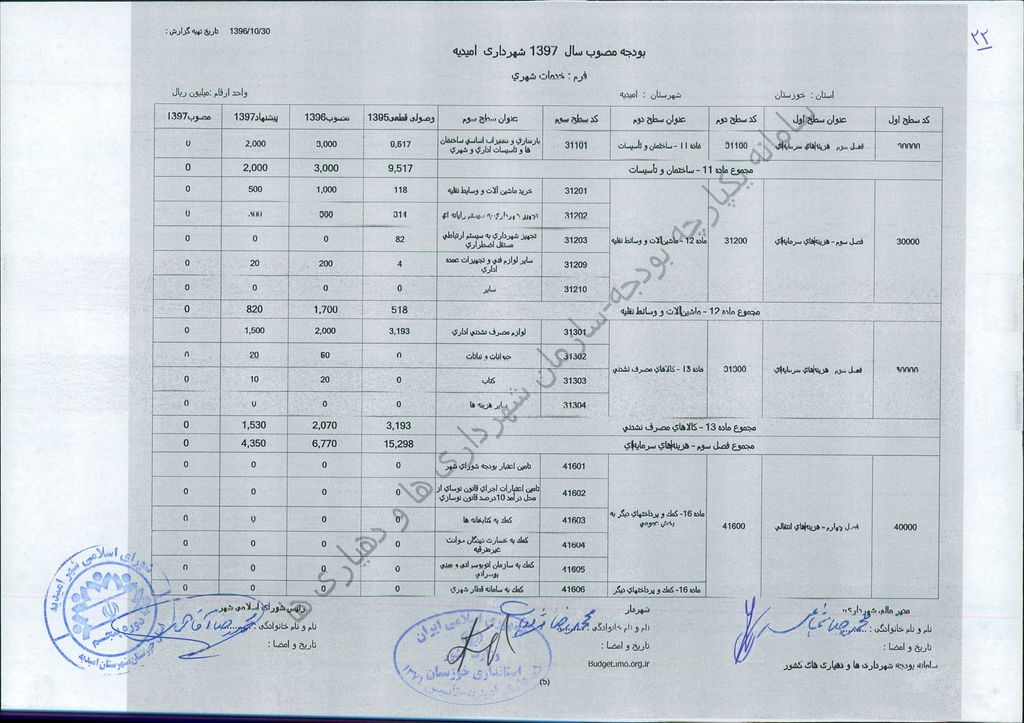 ۲۲
تاریخ تهیه گزارش : 1396/10/30
بودجه مصوب سال 1397 شهرداری امیدیه
فرم : خدمات شهري
استان : خوزستان شهرستان : امیدیه واحد ارقام :میلیون ریال
کد سطح اول عنوان سطح اول کد سطح دوم عنوان سطح دوم کد سطح سوم عنوان سطح سوم وصولی قطعی1395 مصوب1396 پیشنهاد1397 مصوب1397
فصل سوم - هزینه‌هاي سرمایه‌اي 31100 ماده 11 - ساختمان و تأسیسات 31101 بازسازي و تعمیرات اساسي ساختمان ها و تاسیسات اداري و شهري 3,000 2,000 0
مجموع ماده 11 - ساختمان و تأسیسات 9,517 3,000 2,000 0
30000 فصل سوم - هزینه‌هاي سرمایه‌اي 31200 ماده 12 - ماشین‌آلات و وسائط نقلیه
31201 خرید ماشین آلات و وسایط نقلیه 118 1,000 500 0
31202 تجهیز شهرداري به سیستم رایانه اي 314 500 300 0
31203 تجهیز شهرداري به سیستم ارتباطي مستقل اضطراري 82 0 0 0
31209 سایر لوازم فني و تجهیزات عمده اداري 4 200 20 0
31210 سایر 0 0 0 0
مجموع ماده 12 - ماشین‌آلات و وسائط نقلیه 518 1,700 820 0
فصل سوم - هزینه‌هاي سرمایه‌اي 31300 ماده 13 - کالاهاي مصرف نشدني
31301 لوازم مصرف نشدني اداري 3,193 2,000 1,500 0
31302 حیوانات و نباتات 0 50 20 0
31303 کتاب 0 20 10 0
31304 سایر هزینه ها 0 0 0 0
مجموع ماده 13 - کالاهاي مصرف نشدني 3,193 2,070 1,530 0
مجموع فصل سوم - هزینه‌هاي سرمایه‌اي 15,298 6,770 4,350 0
40000 فصل چهارم - هزینه‌هاي انتقالي 41600 ماده 16- کمك و پرداختهاي دیگر به بخش عمومي
41601 تامین اعتبار بودجه شوراي شهر 0 0 0 0
41602 تامین اعتبارات اجراي قانون نوسازي از محل درآمد 10درصد قانون نوسازي 0 0 0 0
41603 کمك به کتابخانه ها 0 0 0 0
41604 کمك به خسارت دیدگان حوادث غیرمترقبه 0 0 0 0
41605 کمك به سازمان اتوبوسراني و میني بوسراني 0 0 0 0
ماده 16- کمك و پرداختهاي دیگر 41606 کمك به سامانه قطار شهري 0 0 0 0
سامانه یکپارچه بودجه-سازمان شهرداری ها و دهیاری ها
مدیر مالي شهرداري: شهردار رئیس شورای اسلامی شهر
نام و نام خانوادگی : نام و نام خانوادگی : نام و نام خانوادگی :
تاریخ و امضا : تاریخ و امضا : تاریخ و امضا :
سامانه بودجه شهرداری ها و دهیاری های کشور Budget.imo.org.ir
(5)
شورای اسلامی شهر امیدیه
دوره پنجم
استانداری خوزستان